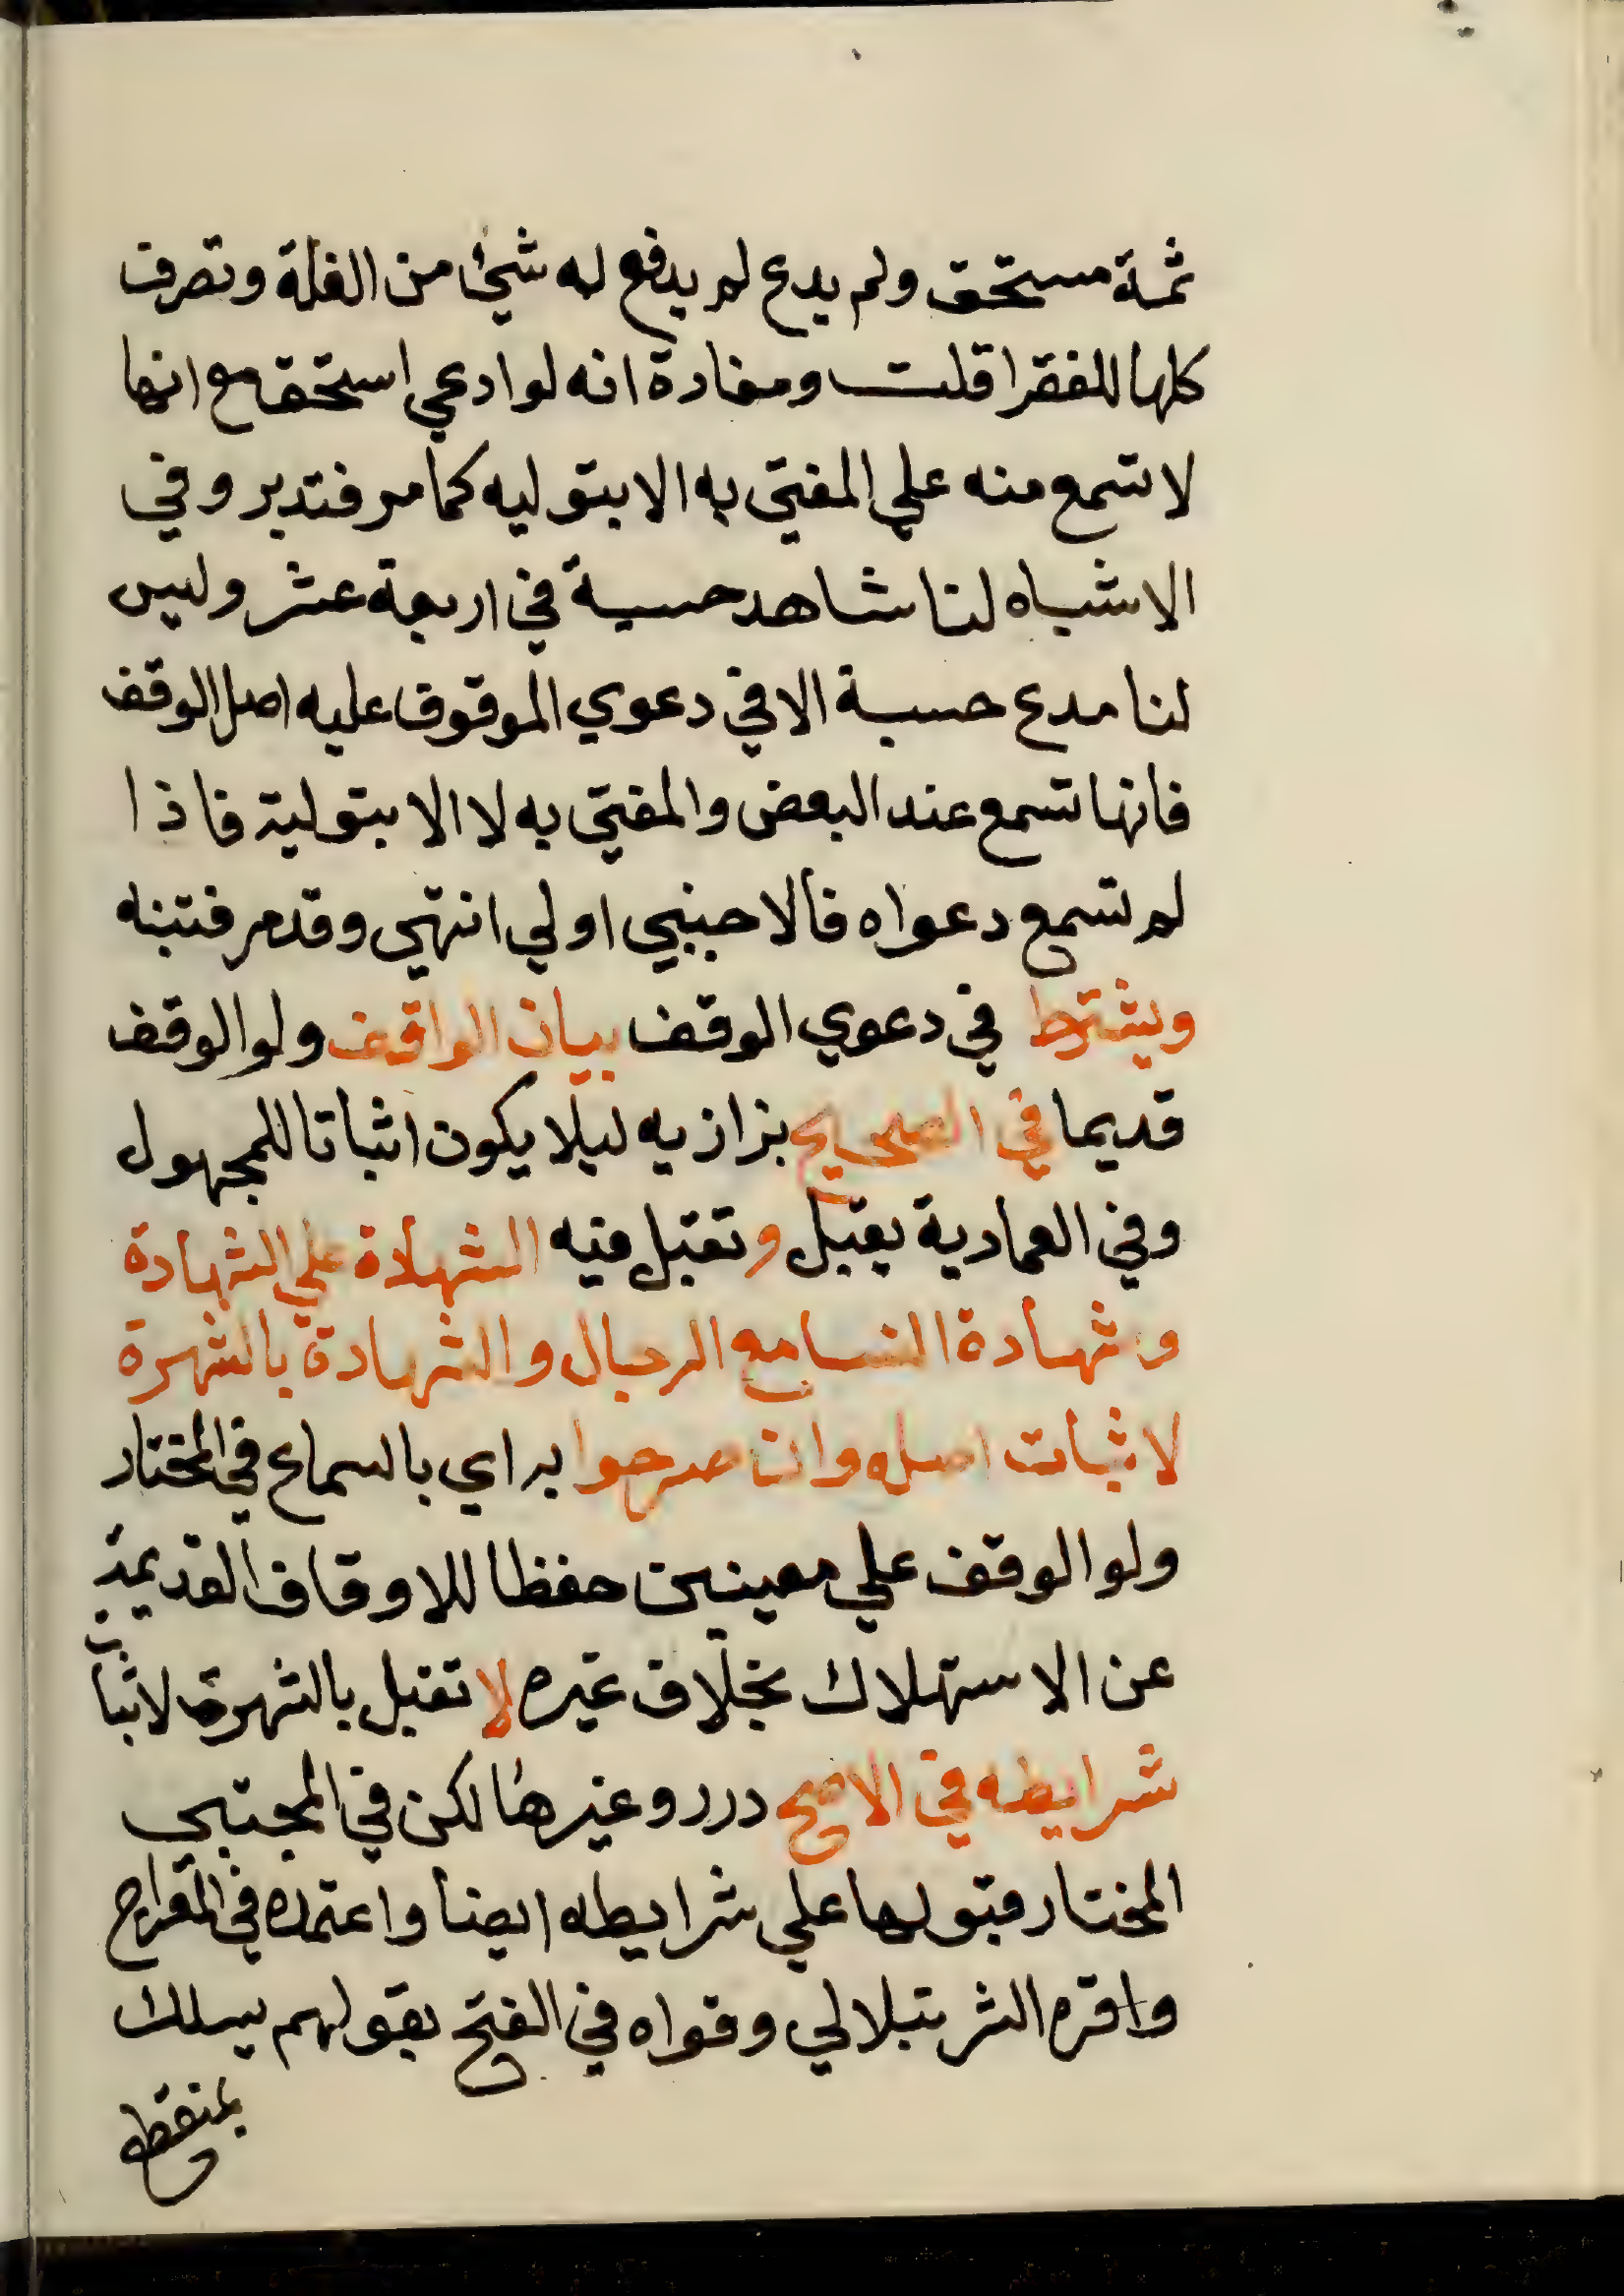 ثمة مستحق ولم يدع لم يدفع له شئ من الغلة وتصرف
كلها للفقرا قلت ومفاده انه لو ادعي استحق مع انها
لا تسمع منه علي المفتي به الا بتوليه كما مر فتدبر وفي
الاشباه لنا شاهد حسبة في اربعة عشر وليس
لنا مدع حسبة الا في دعوي الموقوف عليه اصل الوقف
فانها تسمع عند البعض والمفتي به لا الا بتولية فاذا
لم تسمع دعواه فالاجنبي اولي انتهي وقد مر فتنبه
ويشترط في دعوي الوقف بيان الواقف ولو الوقف
قديما في الصحيح بزازيه ليلا يكون اثباتا للمجهول
وفي العمادية يقبل وتقبل فيه الشهادة علي الشهادة
وشهادة النسا مع الرجال والشهادة بالشهرة
لاثبات اصله وان صرحوا به اي بالسماع في المختار
ولو الوقف علي معينين حفظا للاوقاف القديمة
عن الاستهلاك بخلاف غيره لا تقبل بالشهرة لاثبات
شرايطه في الاصح درر وغيرها لكن في المجتبي
المختار قبولها علي شرايطه ايضا واعتمده في المعراج
واقره الشرنبلالي وقواه في الفتح بقولهم يسلك
بمنقطع